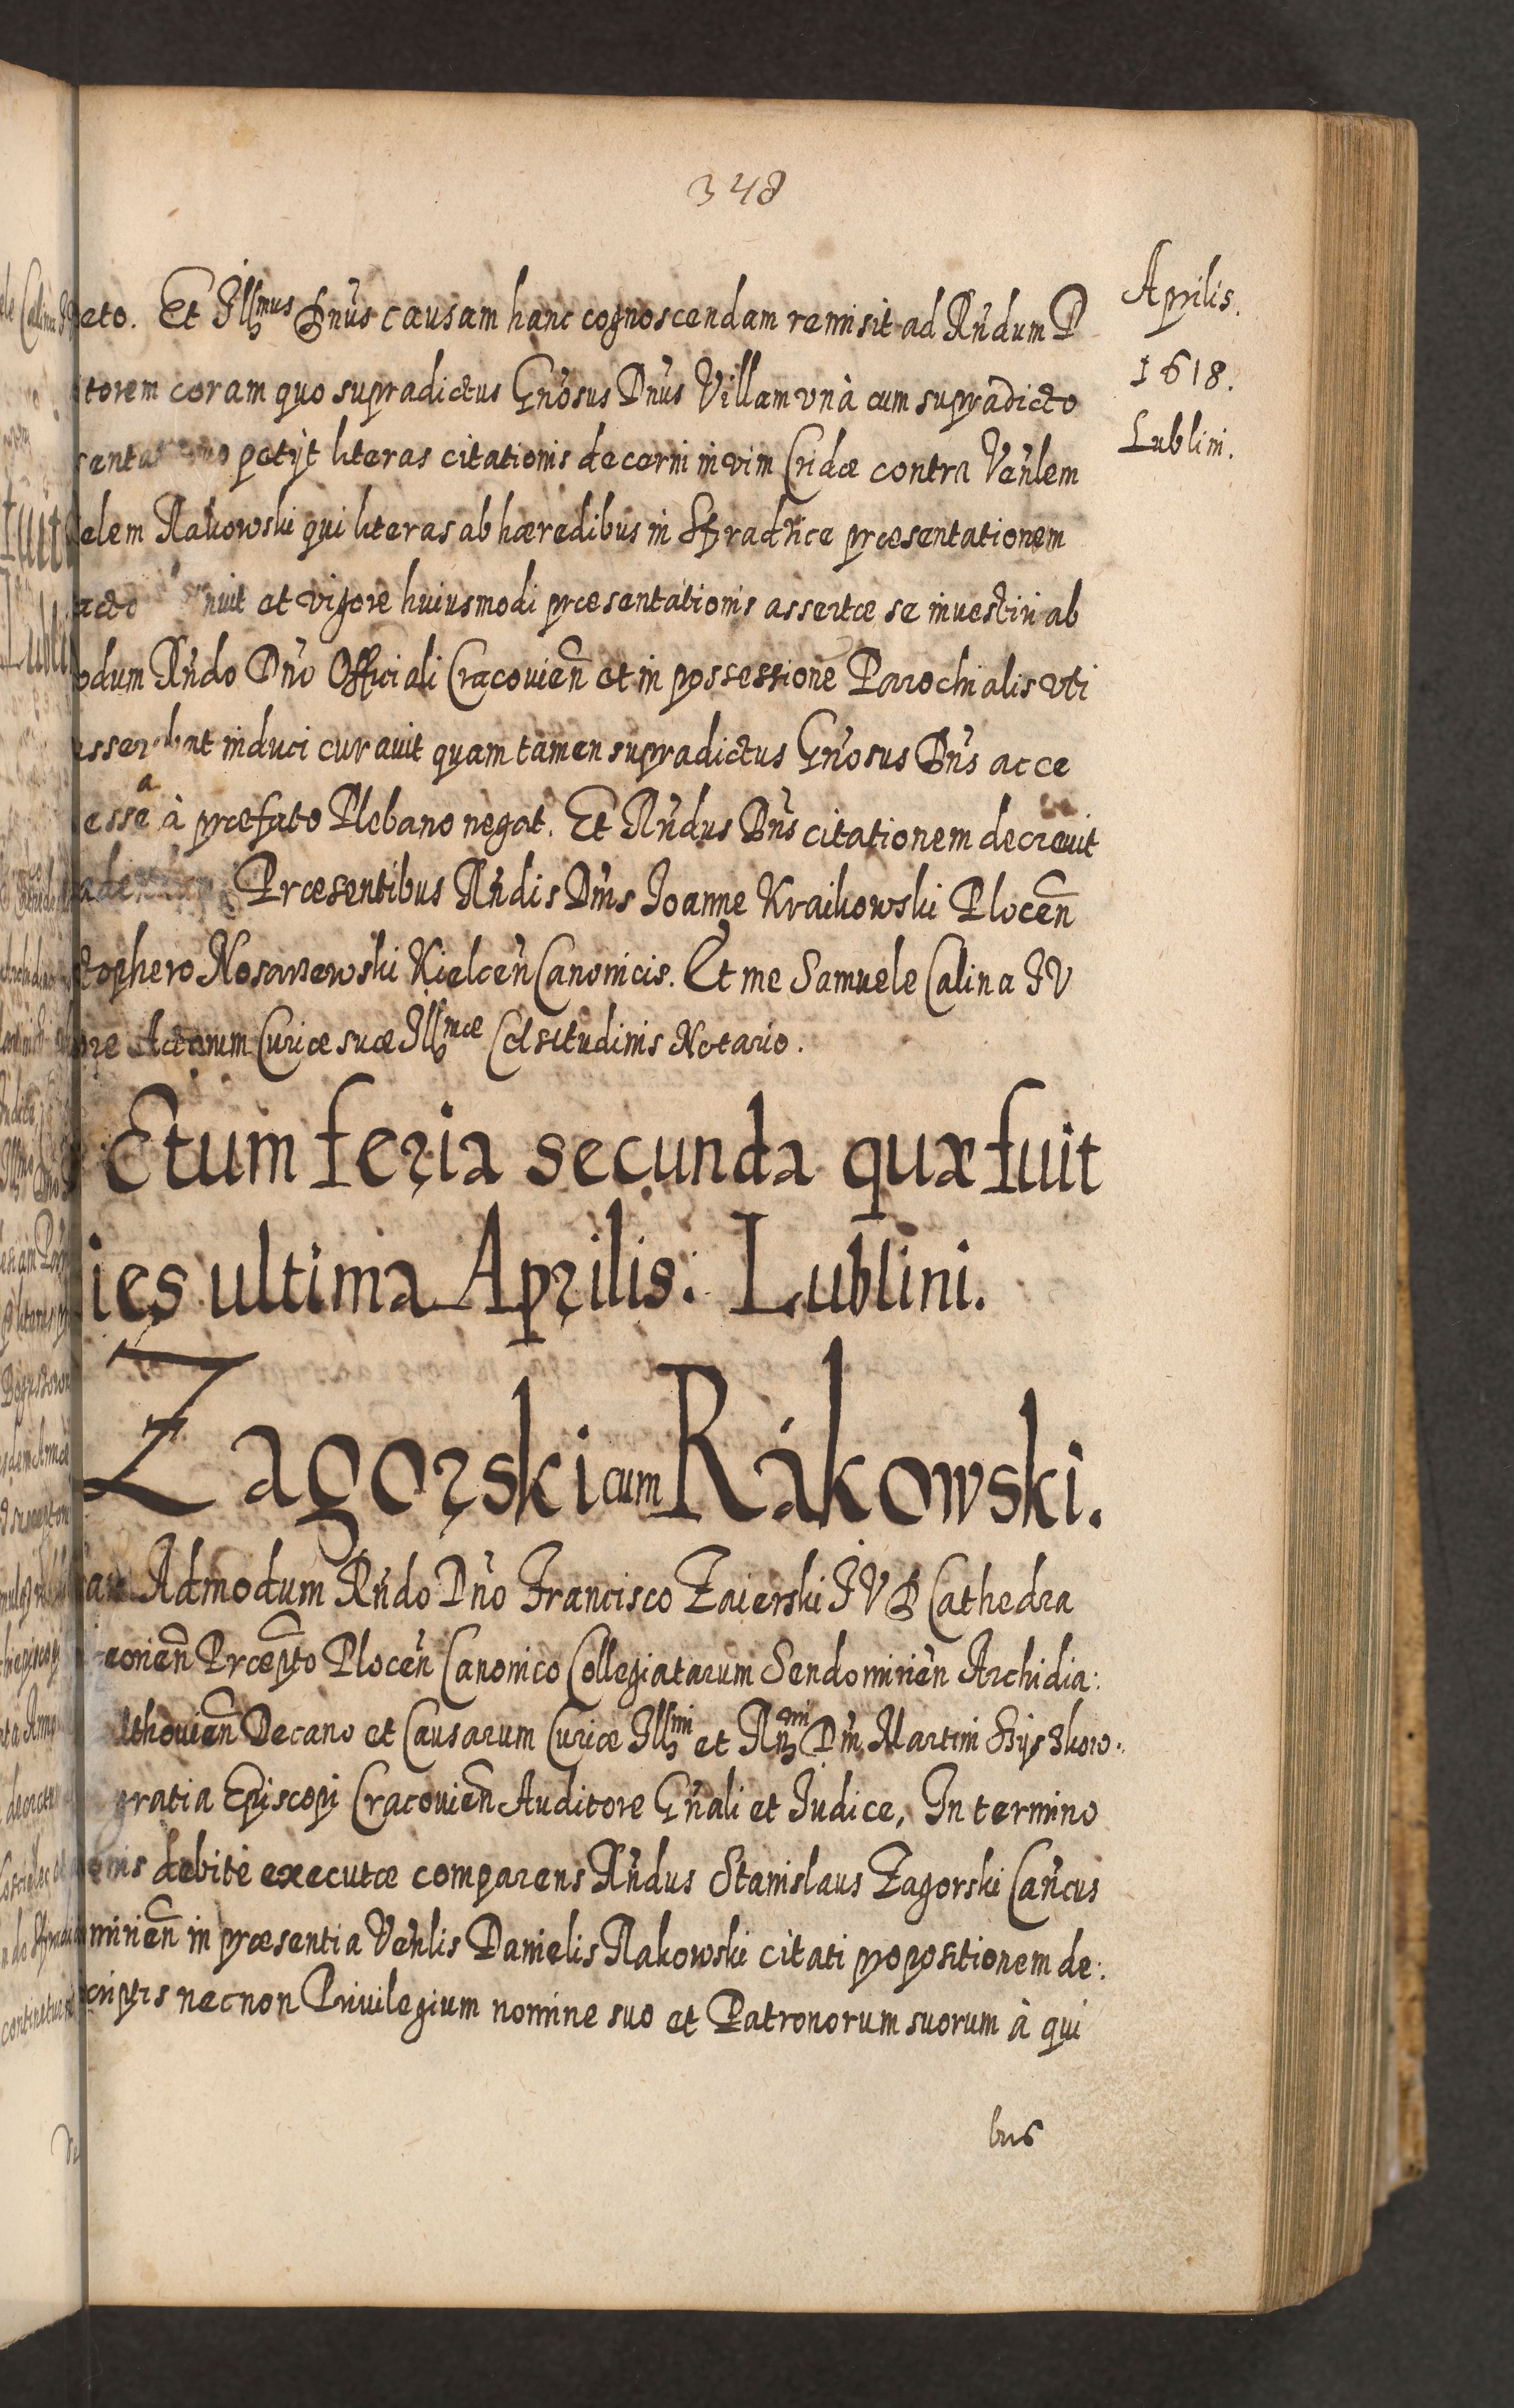 348
Aprilis.
1618.
Lublini.
eto. Et Illmus Dnus causam hanc cognoscendam remisit ad Rndum D
torem coram quo supradictus Gnosus Dnus Villam vnà cum supradicto
petijt literas citationis decerni in vim Cridæ contra Venlem
elem Rakowski qui literas ab hæredibus in præsentationem
nuit et vigore huiusmodi præsentationis assertæ se inuestiri ab
odum Rndo Dno Officiali Cracouien et in possessione Parochialis vti
asserebat induci curauit quam tamen supradictus Gnosus Dns acce
essa à præfato Plebano negat. Et Rndus Dns citationem decreuit
Præsentibus Rndis Dnis Joanne Kraikowski Plocen
tophero Nosarzewski Kielcen Canonicis. Et me Samuele Calina JV
ore Actorum Curiæ suæ Illmæ Celsitudinis Notario.
Ctum feria secunda quæ fuit
ies ultima Aprilis. Lublini.
Zagorski cum Rákowski.
Admodum Rndo Dno Francisco Zaierski JVD Cathedra
Præpto Plocen Canonico Collegiatarum Sendomirien Archidia:
Decano et Causarum Curiæ Illmi et Rnmi Dni Martini Szyszkow.
gratia Episcopi Cracouien Auditore Gnali et Judice, In termino
onis debite executæ comparens Rndus Stanislaus Zagorski Cancus
mirien in præsentia Venlis Danielis Rakowski citati propositionem de:
criptis necnon Priuilegium nomine suo et Patronorum suorum à qui
bus